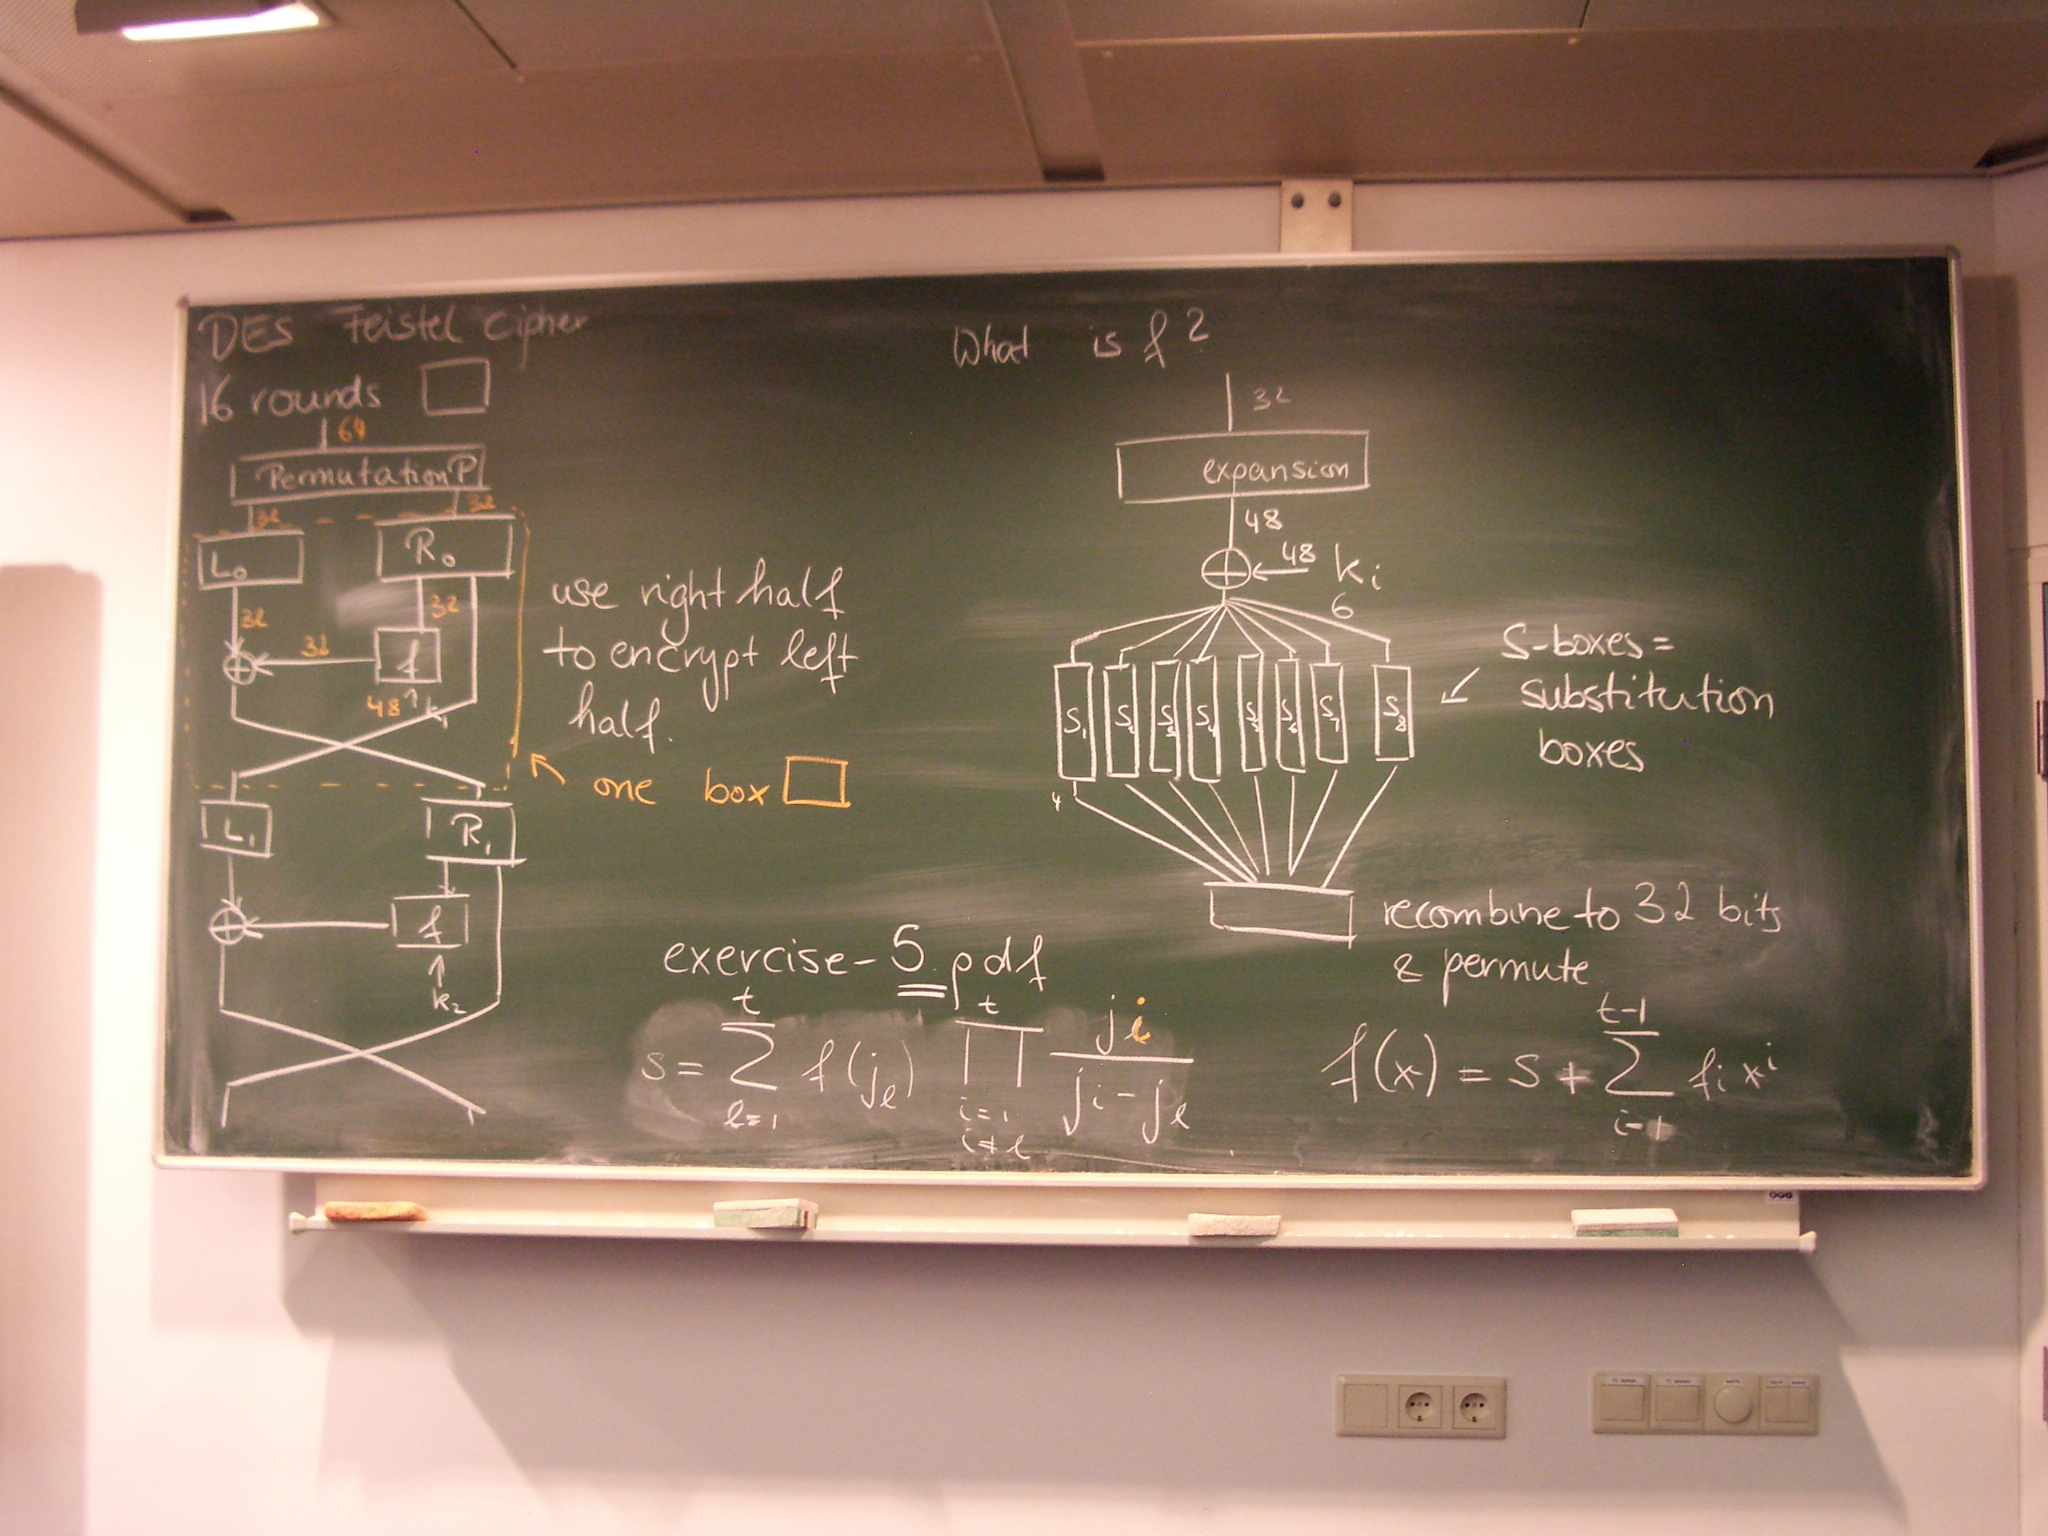 DES Feistel cipher
16 rounds
64
Permutation P
32 32
L₀ R₀
32 32
32 f
48 k₁
L₁ R₁
f
k₂
use right half
to encrypt left
half.
one box
What is f?
32
expansion
48
48 kᵢ
6
S₁ S₂ S₃ S₄ S₅ S₆ S₇ S₈
4
S-boxes =
substitution
boxes
recombine to 32 bits
& permute
exercise-5.pdf
s = ∑_{ℓ=1}^{t} f(j_ℓ) ∏_{i=1, i≠ℓ}^{t} j_i / (j_i - j_ℓ)
f(x) = s + ∑_{i=1}^{t-1} f_i x^i